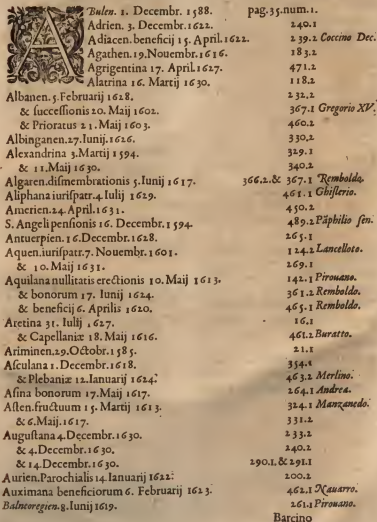 ABulen. 1. Decembr. 1588. pag.35.num.1.
Adrien. 3. Decembr.1622. 240.1
Adiacen. beneficij 15. April.1622. 239.2 Coccino Dec.
Agathen.19.Nouembr.1616. 183.2
Agrigentina 17. April.1627. 471.2
Alatrina 16. Martij 1630. 118.2
Albanen.5.Februarij 1628. 232.2
& successionis 20. Maij 1602. 367.1 Gregorio XV.
& Prioratus 21.Maij 1603. 460.2
Albinganen.27.Iunij.1626. 330.2
Alexandrina 3.Martij 1594. 329.1
& 11.Maij 1630. 340.2
Algaren.dismembrationis 5.Iunij 1617. 366.2.& 367.1 Remboldo.
Aliphana iurispatr.4 Iulij 1629. 461.1 Ghislerio.
Amerien.24.April.1631. 450.2
S. Angeli pensionis 16. Decembr.1594. 489.2 Pāphilio sen.
Antuerpien.16.Decembr.1628. 265.1
Aquen.iurispatr.7. Nouembr.1601. 124.2 Lancelloto.
& 10. Maij 1631. 269.1
Aquilana nullitatis erectionis 10. Maij 1613. 142.1 Pirouano.
& bonorum 17. Iunij 1624. 361.2 Remboldo.
& beneficij 6. Aprilis 1620. 465.1 Remboldo.
Aretina 31. Iulij 1627. 16.1
& Capellaniæ 18. Maij 1616. 461.2 Buratto.
Ariminen.29.Octobr.1585. 21.1
Asculana 1.Decembr.1618. 354.1
& Plebaniæ 12.Ianuarij 1624. 463.2 Merlino.
Asina bonorum 17.Maij 1617. 264.1 Andrea.
Asten.fructuum 15. Martij 1613. 324.1 Manzanedo.
& 6.Maij.1617. 331.2
Augustana 4.Decembr.1630. 233.2
& 4.Decembr.1630. 240.2
& 14.Decembr.1630. 290.1.& 291.1
Aurien.Parochialis 14.Ianuarij 1622. 200.2
Auximana beneficiorum 6. Februarij 1623. 462.1 Nauarro.
Balneoregien.8.Iunij 1619. 261.1 Pirouano.
Barcino